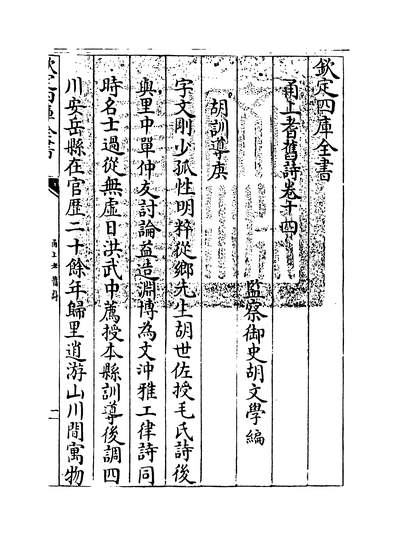 欽定四庫全書
甬上耆舊詩卷十四
監察御史胡文學編
胡訓導庚
字文剛少孤性明粹從鄉先生胡世佐授毛氏詩後
與里中單仲友討論益造淵博為文沖雅工律詩同
時名士過從無虛日洪武中薦授本縣訓導後調四
川安岳縣在官歷二十餘年歸里逍遊山川間寓物
欽定四庫全書
甬上耆舊詩